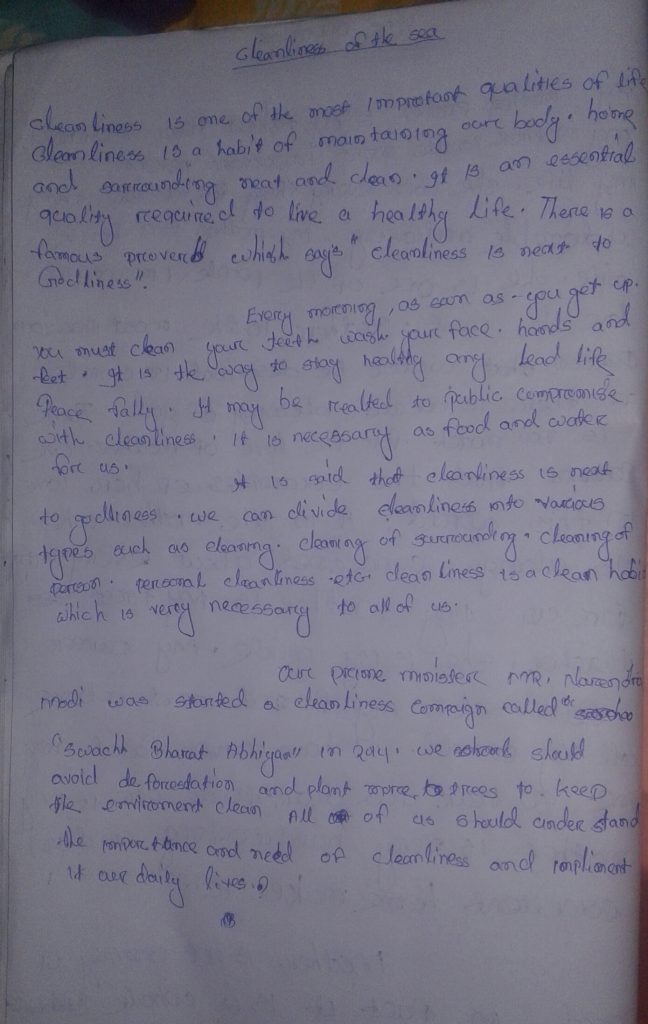 Cleanliness of the sea
cleanliness is one of the most improtant qualities of life
Cleanliness is a habit of maintaining oure body. home
and sarrounding neat and clean. It is an essential
quality rcequired to live a healthy life. There is a
famous prcoverb which say's "cleanliness is neat to
Godliness".
Every morening, as soon as - you get up.
you must clean youre teeth wash youre face. hands and
feet. It is the way to stay healthy any lead life
Peace fally. It may be realted to public compromise
with cleanliness. It is necessary as food and water
fore us.
It is said that cleanliness is neat
to godliness. we can divide cleanliness into various
types such as cleaning. cleaning of surrounding. cleaning of
person. personal cleanliness etc. cleanliness is a clean habit
which is verey necessarcy to all of us.
Oure prcime ministerc MR. Narcendra
modi was started a cleanliness compaign called the
"Swachh Bharat Abhiyan" in 2014. we should
avoid deforcestation and plant morce trees to keep
the enviroment clean All of us should under stand
the imporctance and need of cleanliness and impliment
it oure daily lives.